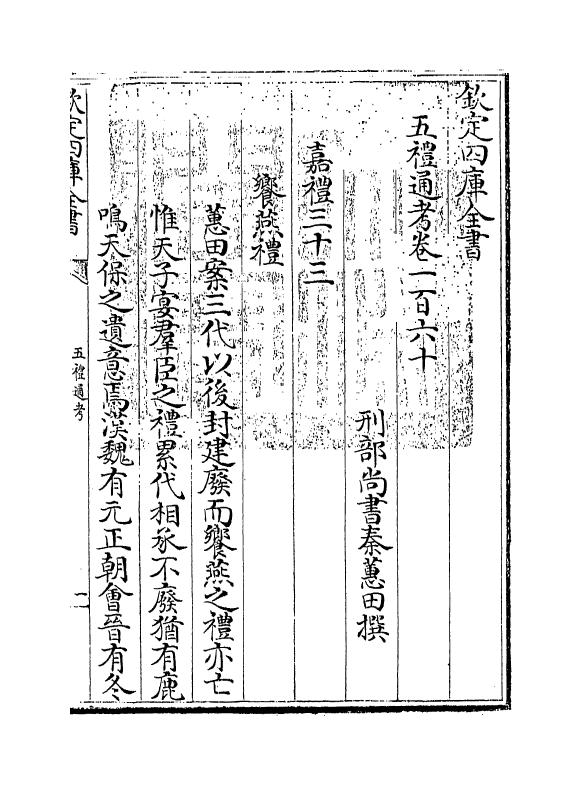 欽定四庫全書
五禮通考卷一百六十
刑部尚書秦蕙田撰
嘉禮三十三
饗燕禮
蕙田案三代以後封建廢而饗燕之禮亦亡
惟天子宴羣臣之禮累代相承不廢猶有鹿
鳴天保之遺意焉漢魏有元正朝會晉有冬
欽定四庫全書
五禮通考